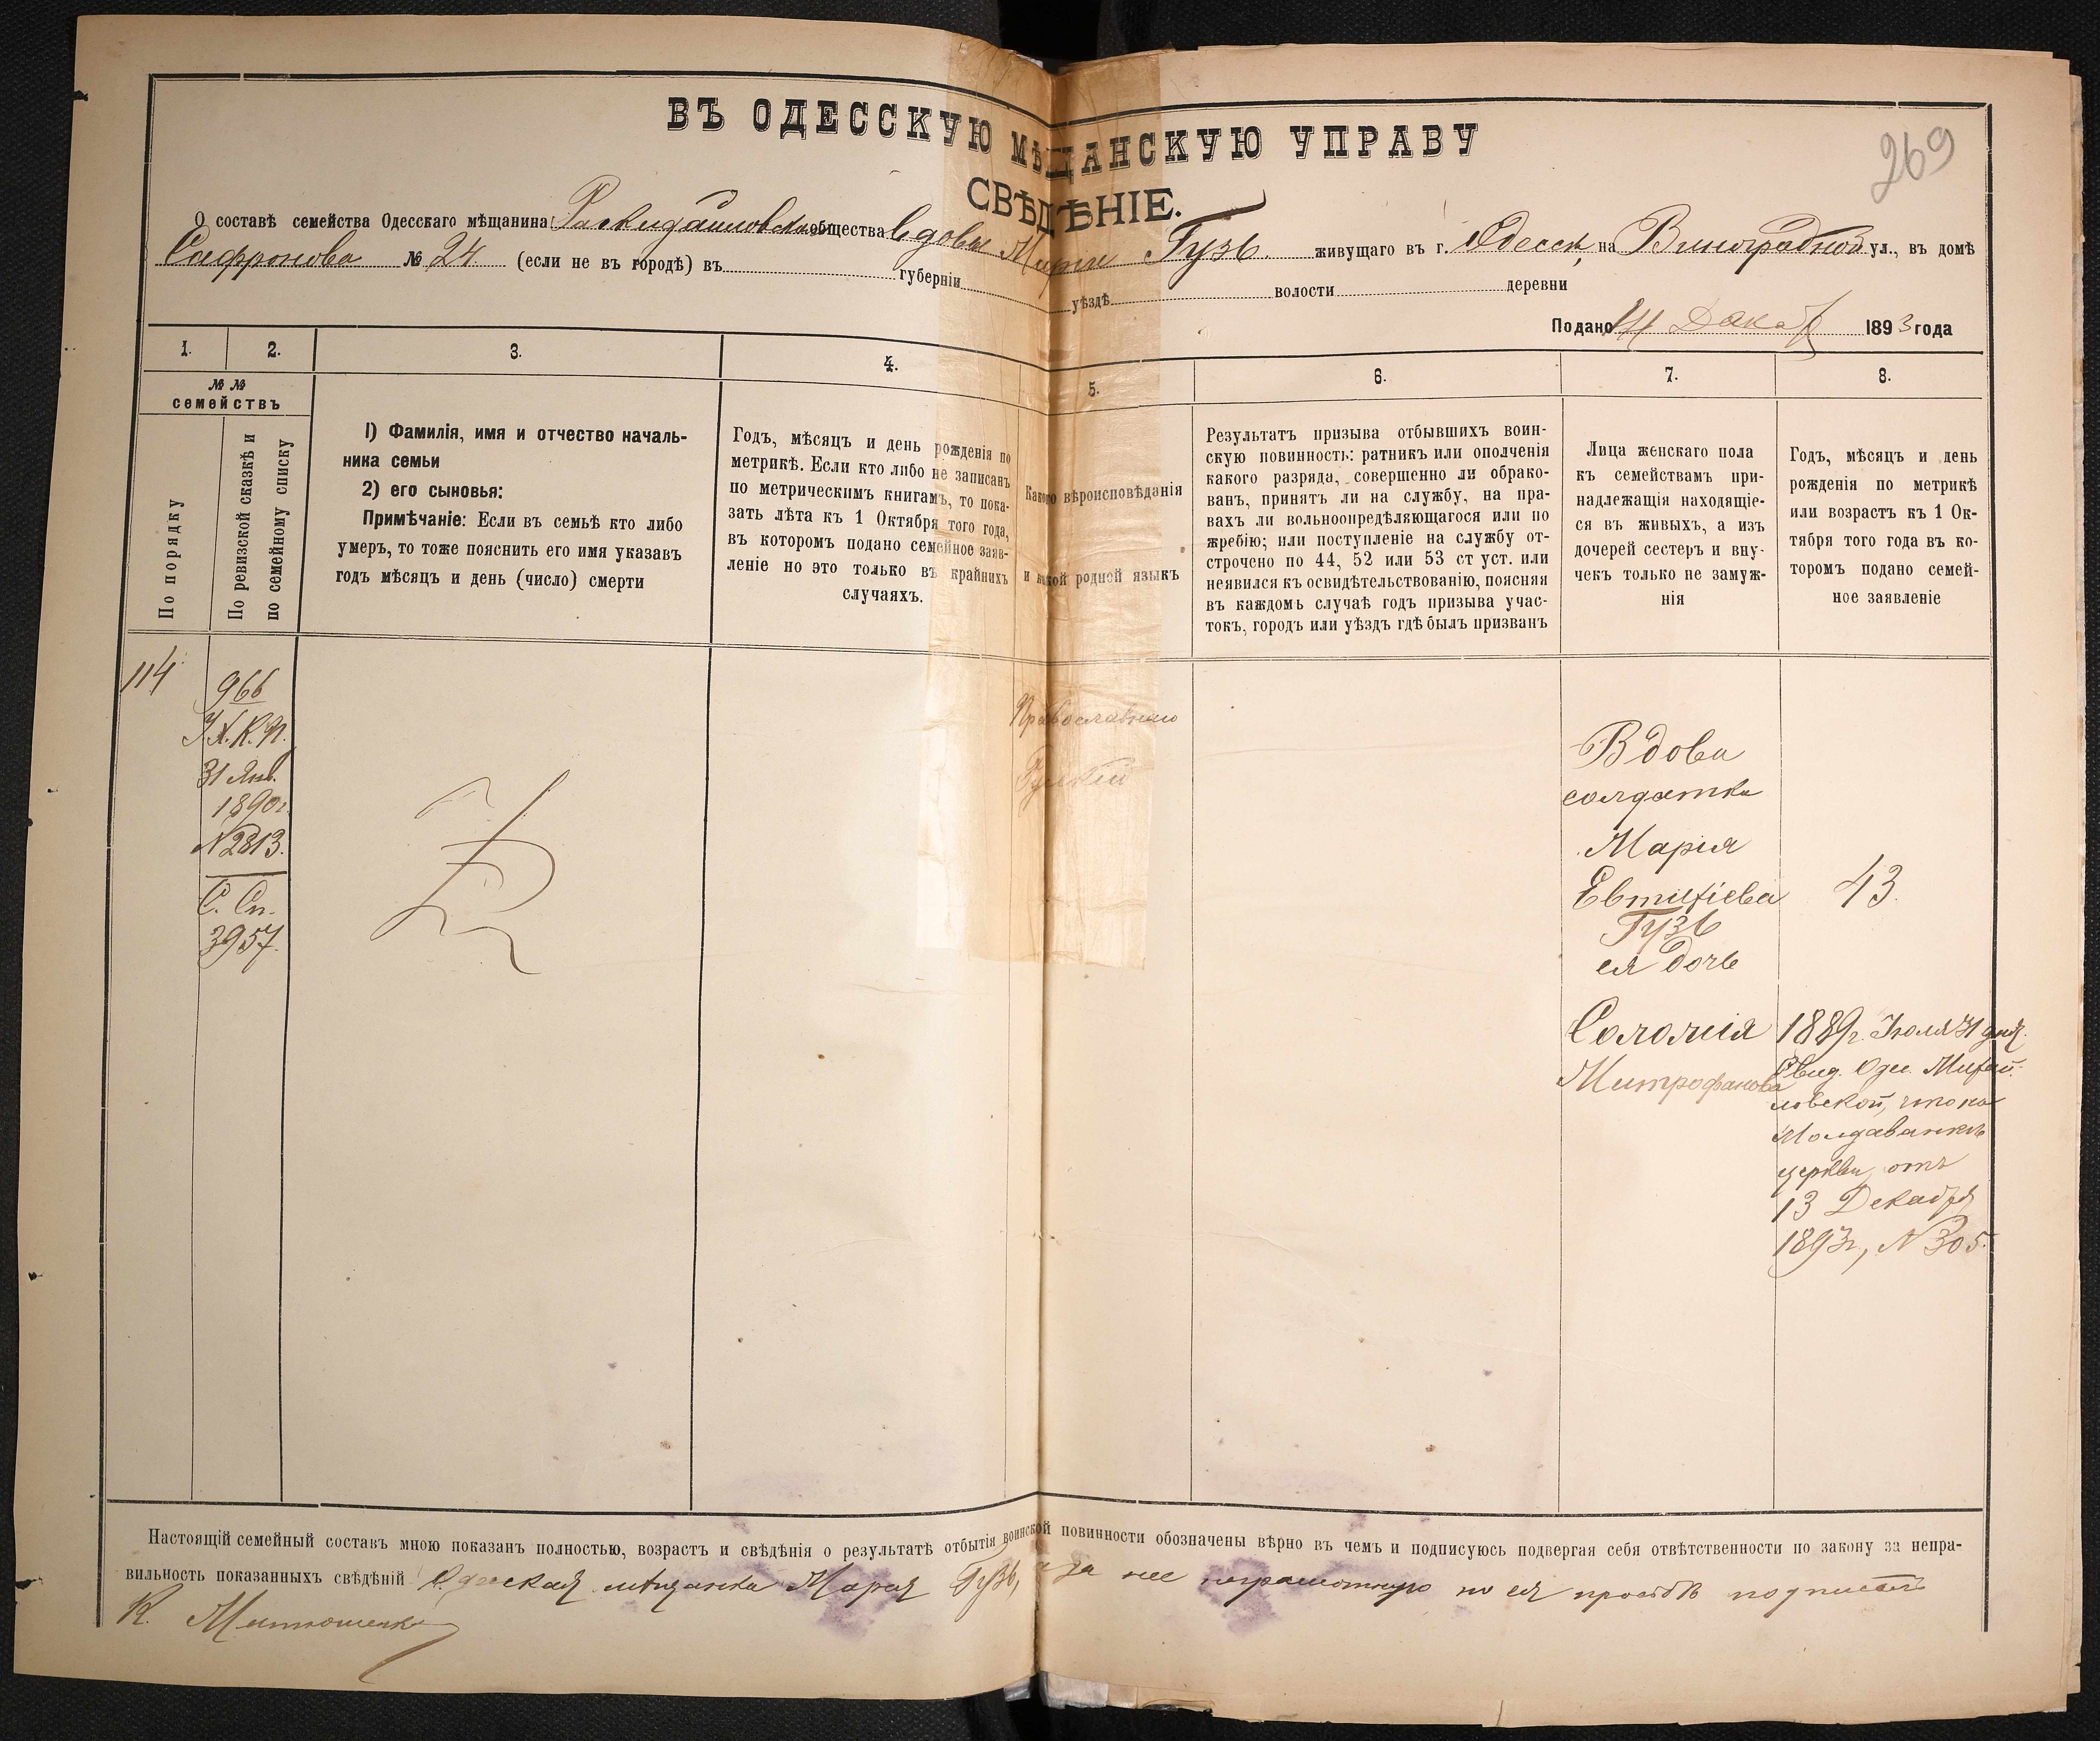 ВЪ ОДЕССКУЮ МѢЩАНСКУЮ УПРАВУ
269
СВѢДѢНІЕ.
О составѣ семейства Одесскаго мѣщанина общества вдовы Маріи Гузь. живущаго въ г. Одессѣ, на Виноградной ул., въ домѣ
Сафронова № 24. (если не въ городѣ) въ губерніи уѣздѣ волости деревни
Подано 14 Декаб 1893 года
1. 2. 3. 4. 5. 6. 7. 8.
№ №
семействъ
По порядку
По ревизской сказкѣ и
по семейному списку
1) Фамилія, имя и отчество началь-
ника семьи
2) его сыновья:
Примѣчаніе: Если въ семьѣ кто либо
умеръ, то тоже пояснить его имя указавъ
годъ мѣсяцъ и день (число) смерти
Годъ, мѣсяцъ и день рожденія по
метрикѣ. Если кто либо не записанъ
по метрическимъ книгамъ, то пока-
зать лѣта къ 1 Октября того года,
въ которомъ подано семейное заяв-
леніе но это только въ крайнихъ
случаяхъ.
Какого вѣроисповѣданія
и какой родной языкъ
Результатъ призыва отбывшихъ воин-
скую повинность: ратникъ или ополченія
какого разряда, совершенно ли обрако-
ванъ, принятъ ли на службу, на пра-
вахъ ли вольноопредѣляющагося или по
жребію; или поступленіе на службу от-
строчено по 44, 52 или 53 ст уст. или
неявился къ освидѣтельствованію, поясняя
въ каждомъ случаѣ годъ призыва учас-
токъ, городъ или уѣздъ гдѣ былъ призванъ
Лица женскаго пола
къ семействамъ при-
надлежащія находящіе-
ся въ живыхъ, а изъ
дочерей сестеръ и вну-
чекъ только не замуж-
нія
Годъ, мѣсяцъ и день
рожденія по метрикѣ
или возрастъ къ 1 Ок-
тября того года въ ко-
торомъ подано семей-
ное заявленіе
114
966
У.Х.К.П.
31 Янв.
1890г.
№2813.
С. Сп.
3957.
Православнаго
Русскій
Вдова
солдатка
Марія
Евтихіева
Гузь
ея дочь
Соломія
Митрофанова
43.
1889г. Іюля 31 дня.
Свид. Одес. Михай-
ловской, что на
Молдаванкѣ
церкви, отъ
13 Декабря
1893г, № 305.
Настоящій семейный составъ мною показанъ полностью, возрастъ и свѣдѣнія о результатѣ отбытія воинской повинности обозначены вѣрно въ чемъ и подписуюсь подвергая себя отвѣтственности по закону за непра-
вильность показанныхъ свѣдѣній Одесская мѣщанка Марія Гузь, а за нее неграмотную по ея просьбѣ подписалъ
К. Митюшенко